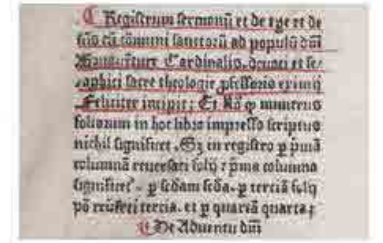 Registrum sermonū et de tꝑe et de
scīs cū cōmuni sanctorū ad populū dn̄i
Cardinalis, deuoti et se-
raphici sacre theologie ꝓfessoris eximij
Feliciter incipit: Et nō ꝙ numerus
foliorum in hoc libro impresso scriptus
nichil significet. Sꝫ in registro ꝑ pͥmā
columnā reuersati folij: pͥma columna
significet. ꝑ scdam scda. ꝑ terciā folij
pō tercia. et ꝑ quartā quarta:
De Aduentu dn̄i